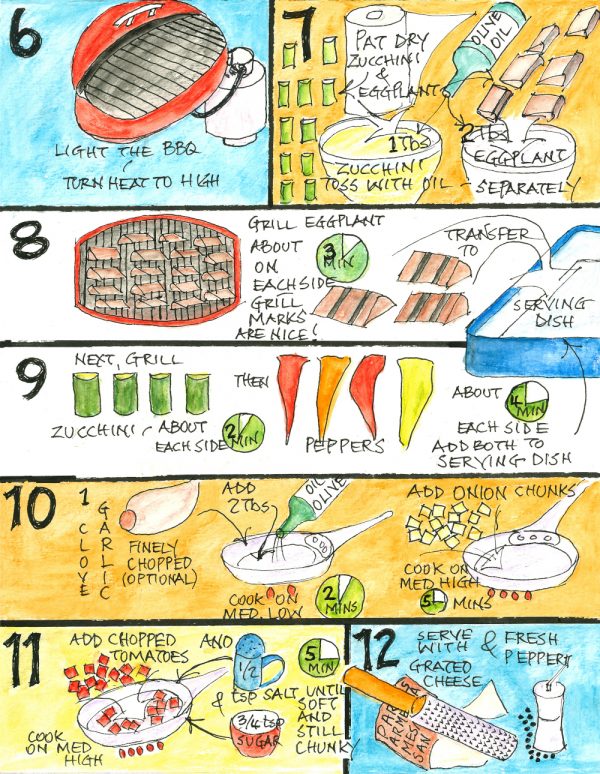 6
LIGHT THE BBQ
TURN HEAT TO HIGH
7
PAT DRY
ZUCCHINI
&
EGGPLANT
OLIVE
OIL
1 Tbs
ZUCCHINI
2 Tbs
EGGPLANT
TOSS WITH OIL - SEPARATELY
8
GRILL EGGPLANT
ABOUT
3
MIN
ON
EACH SIDE
GRILL
MARKS
ARE NICE!
TRANSFER
TO
SERVING
DISH
9
NEXT, GRILL
ZUCCHINI - ABOUT
EACH SIDE
2
MIN
THEN
PEPPERS
ABOUT
4
MIN
EACH SIDE
ADD BOTH TO
SERVING DISH
10
1 CLOVE
GARLIC
FINELY
CHOPPED
(OPTIONAL)
ADD
2 Tbs
OLIVE
OIL
COOK ON
MED. LOW
2
MINS
ADD ONION CHUNKS
COOK ON
MED HIGH
5 MINS
11
ADD CHOPPED
TOMATOES
AND
1/2
tsp SALT
&
3/4 tsp
SUGAR
5
MIN
UNTIL
SOFT
AND
STILL
CHUNKY
COOK
ON MED
HIGH
12
SERVE
WITH
GRATED
CHEESE
& FRESH
PEPPER
PAR
MES
SAN